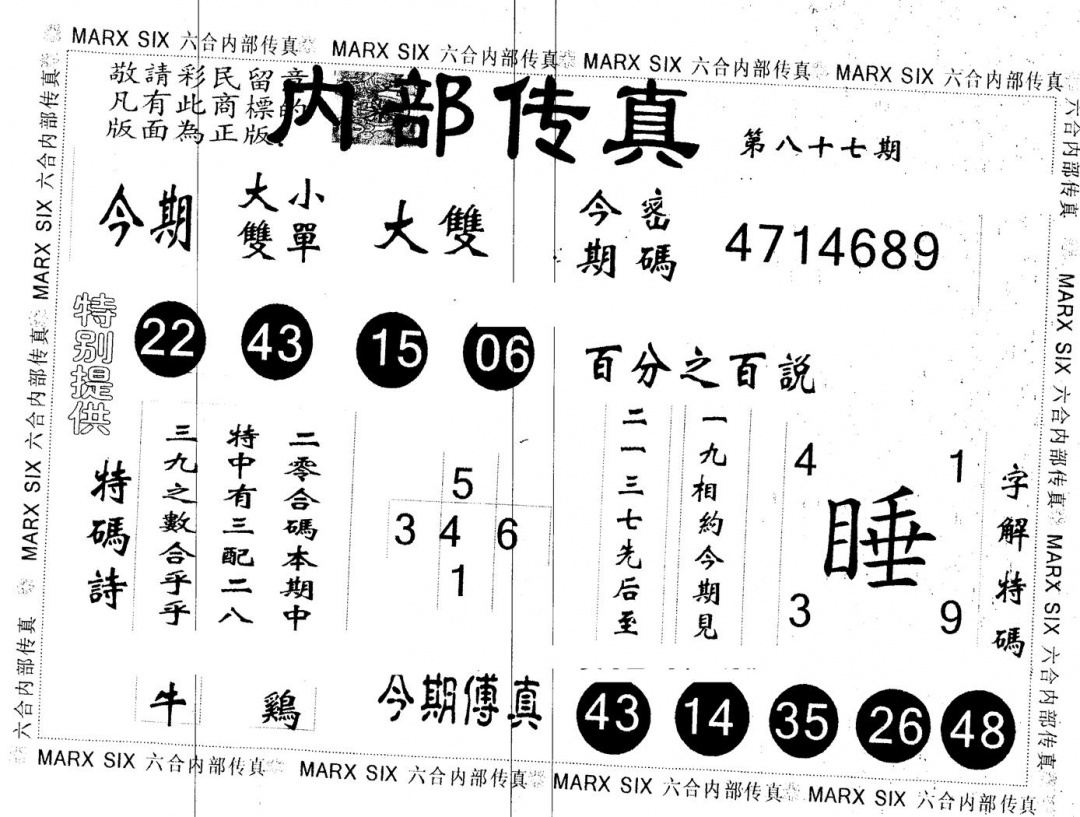 MARX SIX 六合内部传真 MARX SIX 六合内部传真 MARX SIX 六合内部传真 MARX SIX 六合内部传真
敬請彩民留意
凡有此商標的
版面為正版
内部传真
第八十七期
今期
大小
雙單
大雙
今密
期碼
4714689
特别提供
22 43 15 06
百分之百説
特碼詩
二零合碼本期中
特中有三配二八
三九之數合乎乎
5
3 4 6
1
一九相約今期見
二一三七先后至
4 1
睡
3 9
字解特碼
牛 鷄
今期傳真
43 14 35 26 48
MARX SIX 六合内部传真 MARX SIX 六合内部传真 MARX SIX 六合内部传真 MARX SIX 六合内部传真
六合内部传真 MARX SIX 六合内部传真 MARX SIX 六合内部传真
六合内部传真 MARX SIX 六合内部传真 MARX SIX 六合内部传真